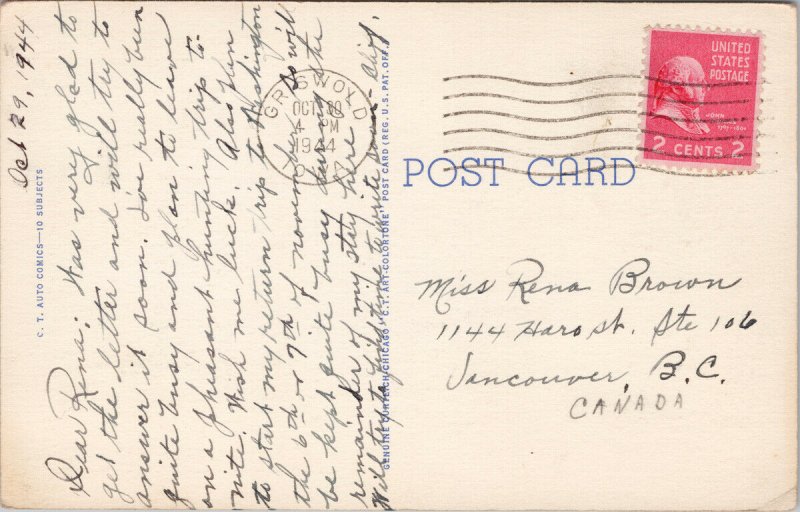 Oct 29, 1944
Dear Rena; Was very glad to
get the letter and will try to
answer it soon. I've really been
quite busy and plan to leave
on a pheasant hunting trip to-
nite. Wish me luck. Also plan
to start my return trip to Washington
the 6th or 7th of november so will
be kept quite busy during the
remainder of my stay here
Will try to find time to write soon -
C. T. AUTO COMICS—10 SUBJECTS
GENUINE CURTEICH-CHICAGO "C. T. ART-COLORTONE" POST CARD (REG. U. S. PAT. OFF.)
GRISWOLD
OCT 30
4 PM
1944
UNITED
STATES
POSTAGE
JOHN
2 CENTS 2
POST CARD
Miss Rena Brown
1144 Haro st. Ste 106
Vancouver, B.C.
CANADA